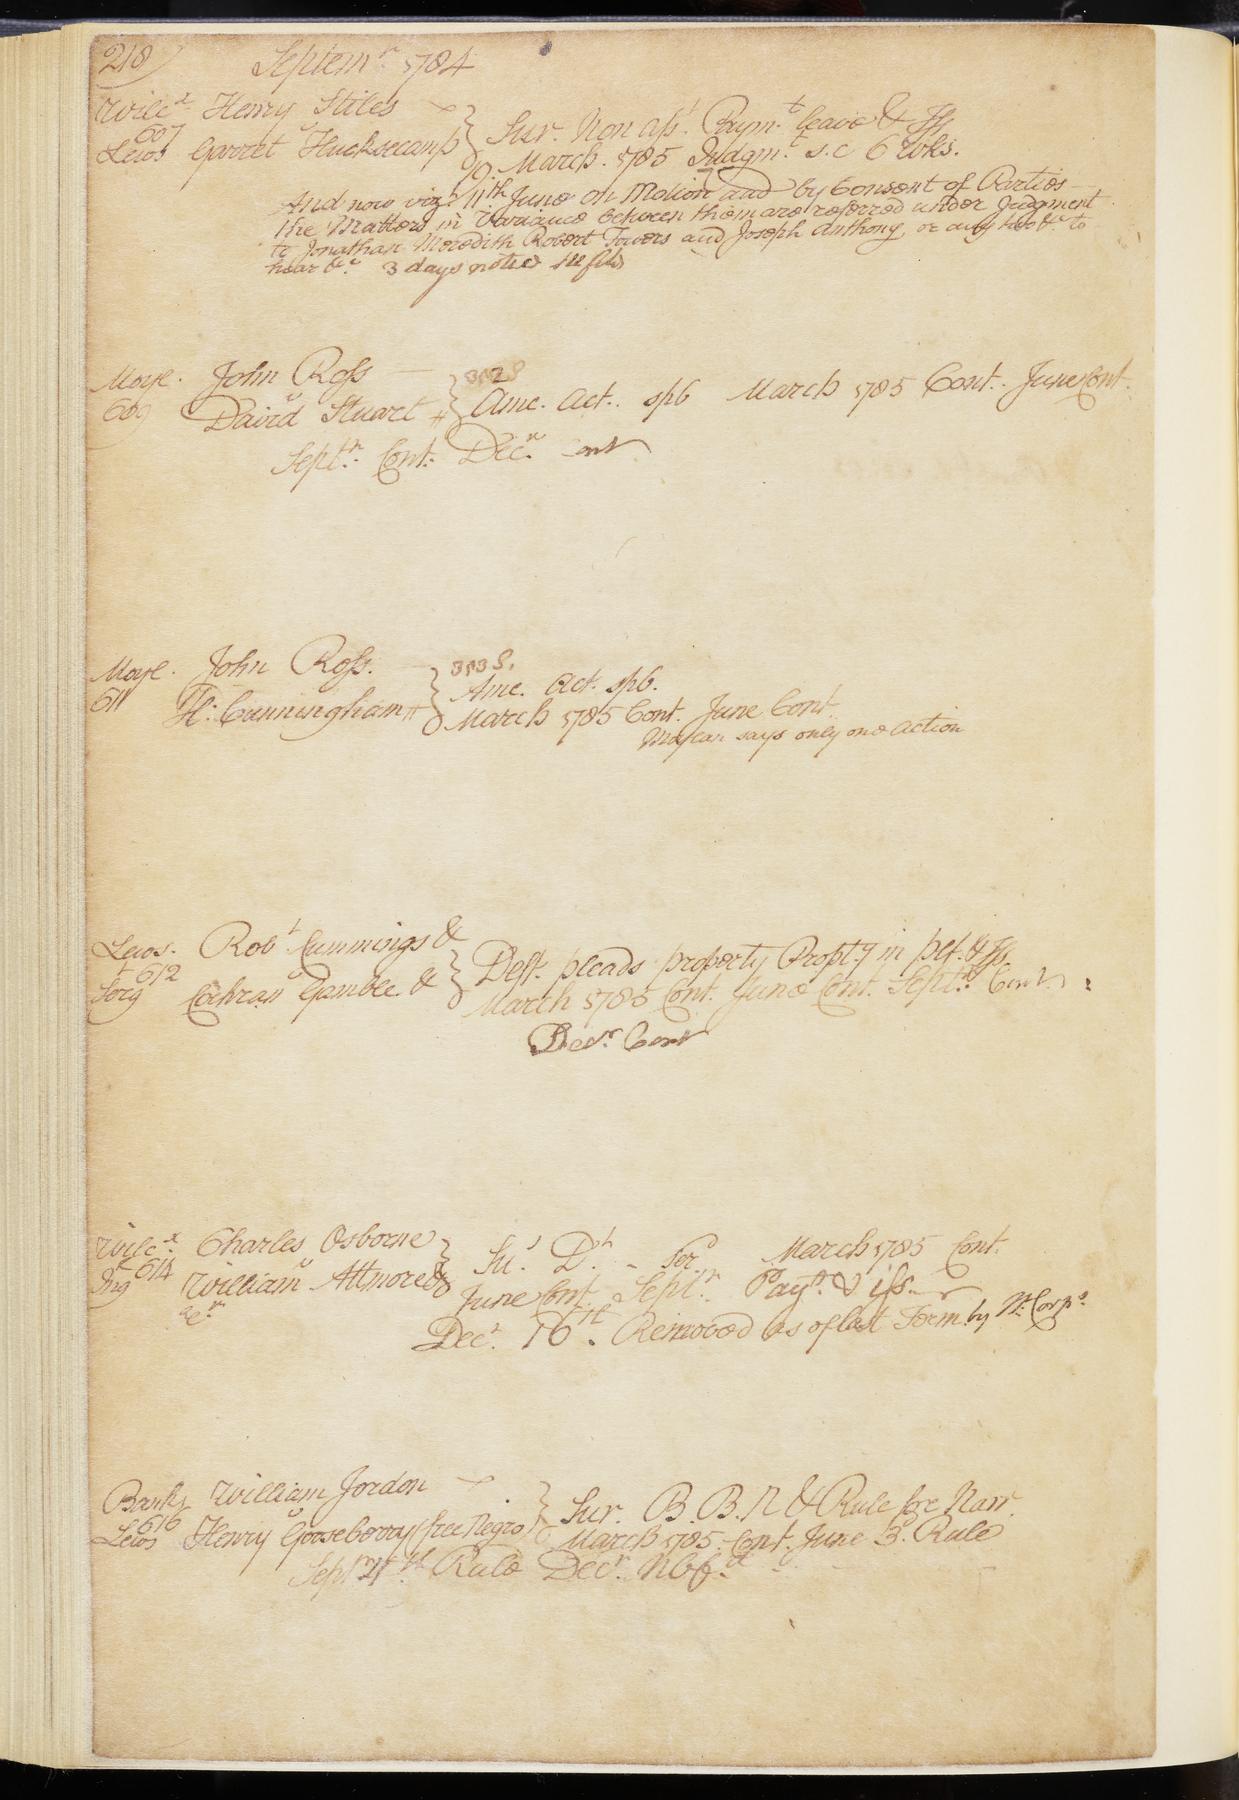 218) Septemr. 1784
Wilcx. Henry Stiles
607 v
Lewis Garret Hucksecamp
Sur. Non asst. Paymt. leave & Iss.
March. 1785 Judgmt. s.c 6 Wks.
And now viz. 11th June on Motion and by Consent of Parties
the Matters in Variance between them are referred under Judgment
to Jonathan Meredith Robert Towers and Joseph Anthony, or any two &c. to
hear &c. 3 days notice
Moyl. John Ross
609 v
David Stuart
Ame. Act. sp6 March 1785 Cont. June Cont.
Septr. Cont. Decr. Cont
Moyl. John Ross.
611 H: Cunningham
Ame. Act. sp6.
March 1785 Cont. June Cont.
says only one action
Lewis. Robt. Cummings &
612 v
Serg Cochran Gamble. &
Deft. pleads property Propty in plf. & Iss.
March 1785 Cont. June Cont. Septr. Cont.
Decr. Cont
Wilcx. Charles Osborne
614 v
Ing William Attmore &
March 1785 Cont.
June Cont. Septr. Payt. & iss.
Decr. 16th. Removed as of last Term by Hs. Corps.
Banks William Jordon
616 v
Lewis Henry Gooseberry (free Negro)
Sur. B. B. N & Rule for Narr.
March 1785. Cont. June 3d. Rule
Septr 4th. Rule Decr.